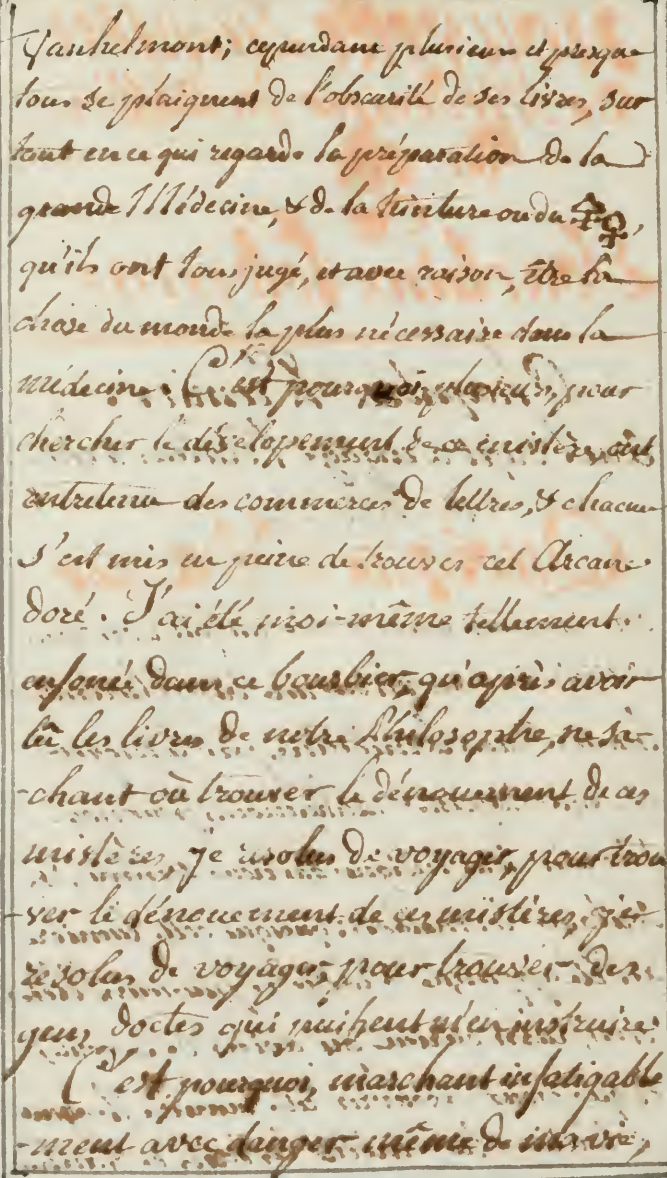 Vanhelmont; cependant plusieurs et presque
tous se plaignent de l'obscurité de ses livres, sur
tout en ce qui regarde la préparation de la
grande Médecine, & de la teinture ou du 🜍♀,
qu'ils ont tous jugé, et avec raison, être la
chose du monde la plus nécessaire dans la
médecine: C'est pourquoi plusieurs, pour
chercher le dévelopement de ce mistère, ont
entretenu des commerces de lettres, & chacun
s'est mis en peine de trouver cet Arcane
doré. J'ai été moi-même tellement
enfoncé dans ce bourbier, qu'après avoir
lû les livres de notre Philosophe, ne sa-
-chant où trouver le dénouement de ces
mistères je résolus de voyager, pour trou
-ver le dénouement de ces mistères, je
résolus de voyager, pour trouver des
gens doctes qui puissent m'en instruire
C'est pourquoi, marchant infatigable
-ment avec danger même de ma vie,